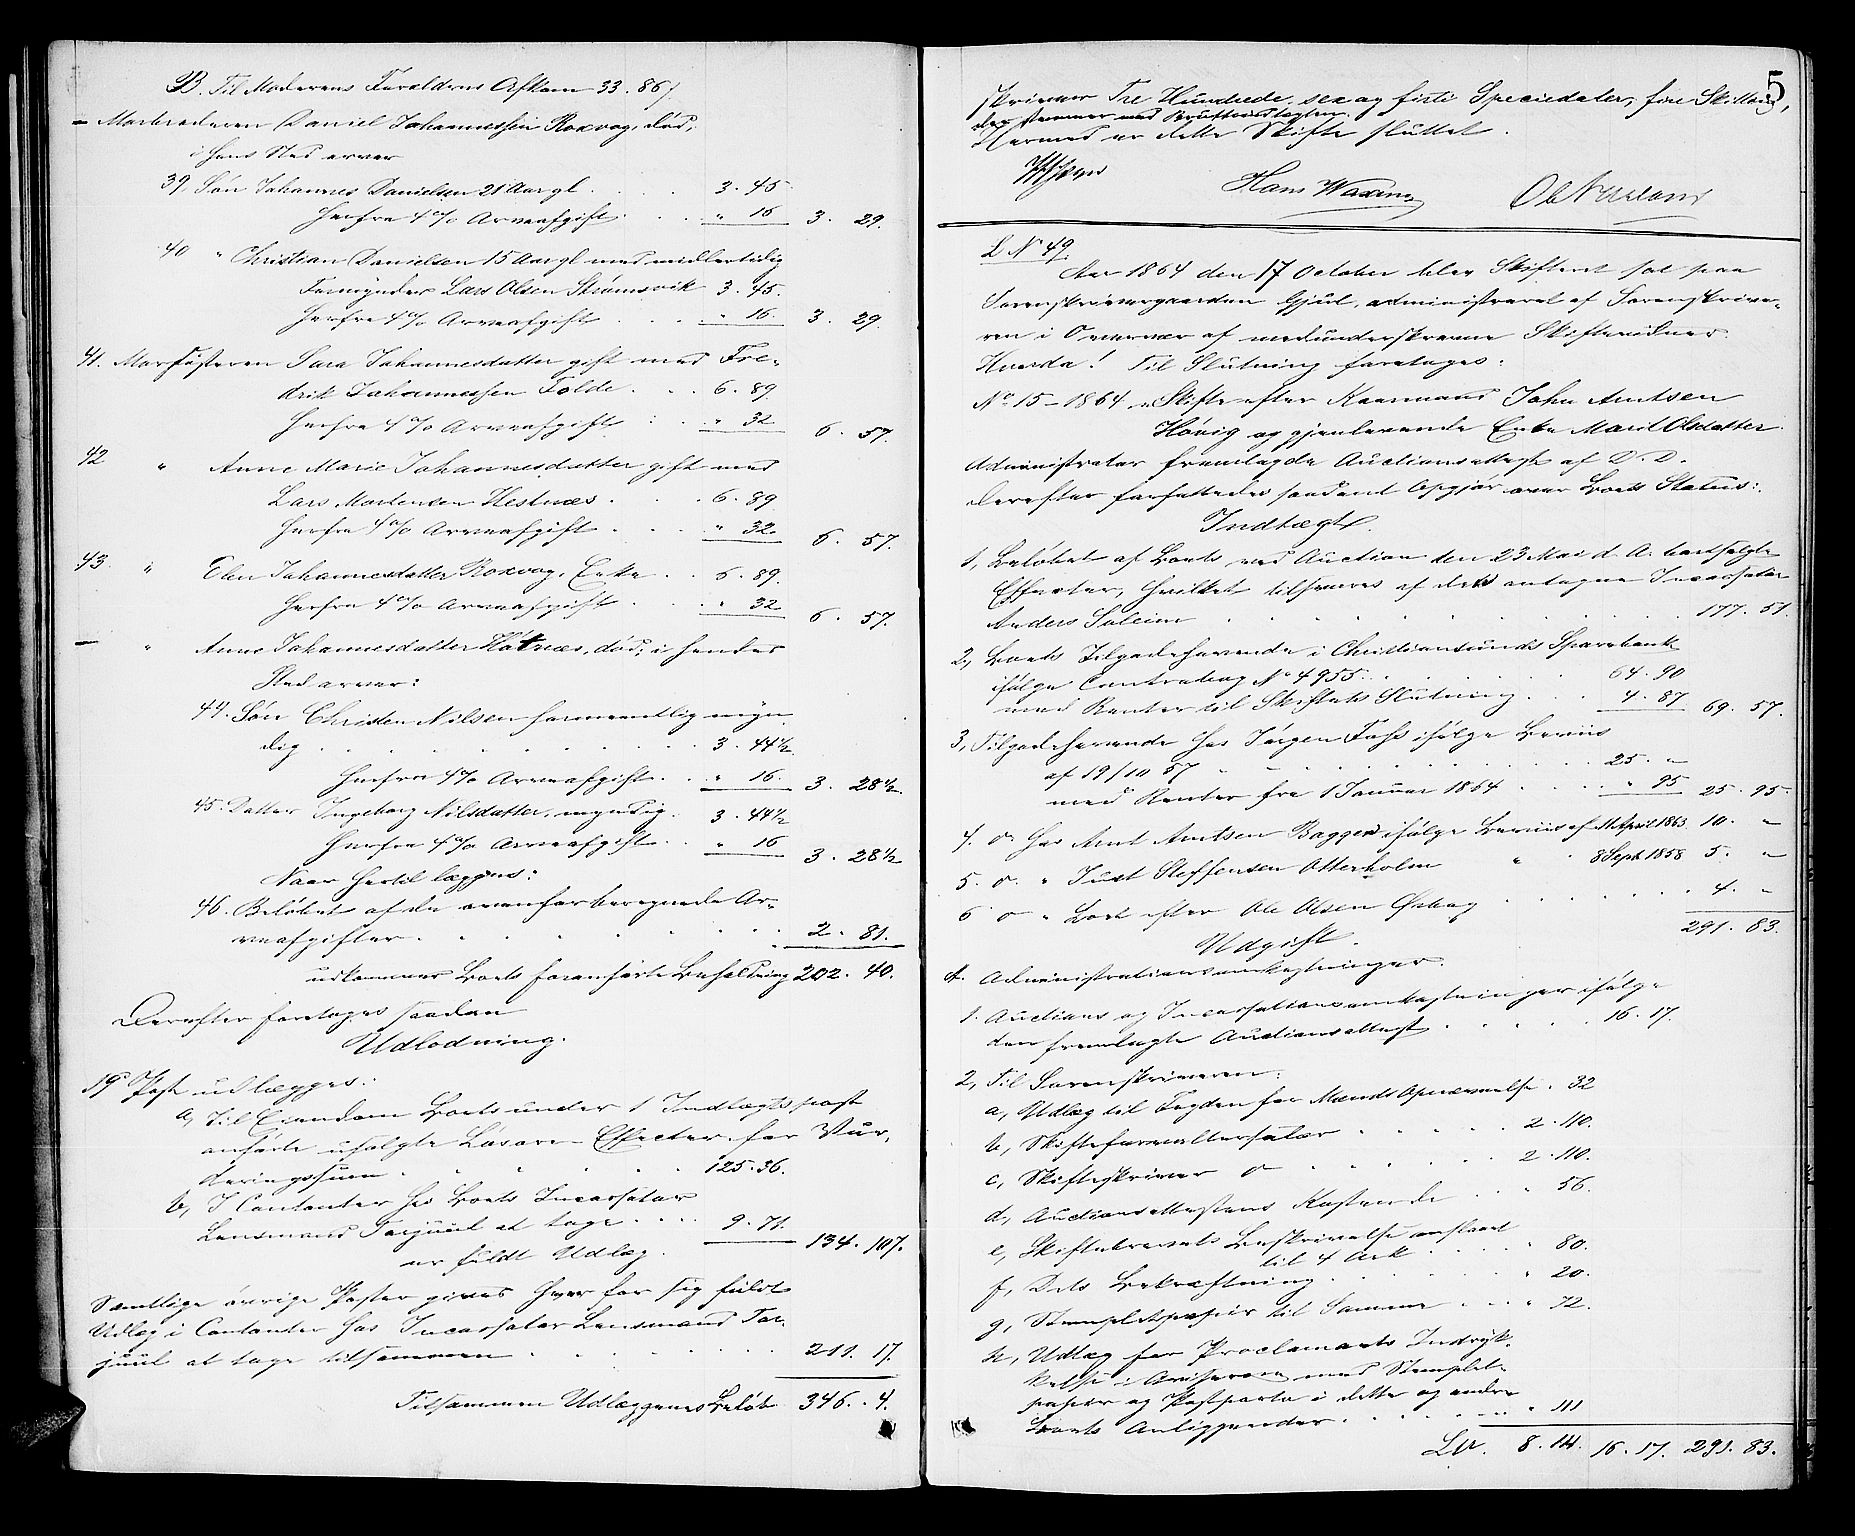 B. Til Moderens Forældres Afkom 33. 86/
– Morbroderen Daniel Johannessen Roxvog, død,
i hans Sted arver
39, Søn Johannes Danielsen 21 Aar gl. . . 3. 45.
herfra 4% Arveafgift . . . " 16 3. 29.
40 " Christian Danielsen 15 Aar gl med midlertidig
Formynder Lars Olsen Strømsvik 3. 45.
herfra 4% Arveafgift . . . " 16. 3. 29.
41. Morsøsteren Sara Johannesdatter gift med Fre-
drik Johannessen Folde . . . 6. 89
herfra 4% Arveafgift . . . " 32 6. 57.
42 " Anne Marie Johannesdatter gift med
Lars Mortensen Hestnæs . . . 6. 89
herfra 4% Arveafgift . . . " 32. 6. 57.
43 " Elen Johannesdatter Roxvog, Enke . . 6. 89.
herfra 4% Arveafgift . . . " 32 6. 57.
– " Anne Johannesdatter Hotnæs, død, i hendes
Sted arver:
44. Søn Christen Nilsen formentlig myn-
dig . . . . . . 3. 44½
herfra 4% Arveafgift . . . " 16. 3. 28½
45. Datter Ingeborg Nilsdatter, myndig . 3. 44½
herfra 4% Arveafgift . . " 16 3. 28½
Naar hertil lægges:
46. Beløbet af de ovenfor beregnede Ar-
veafgifter . . . . . . 2. 81.
udkommer Boets foranførte Beholdning 202. 40.
Derefter foretoges saadan
Udlodning.
19de Post udlægges:
a, Til Eiendom Boets under 1 Indtægtspost
anførte usolgte Løsøre-Effecter for Vur-
deringssum . . . . . 125. 36.
b, I Contanter hos Boets Incassator
Lensmand Torjuul at tage . . . 9. 71.
er fuldt Udlæg. 134. 107.
Samtlige øvrige Poster gives hver for sig fuldt
Udlæg i Contanter hos Incassator Lensmand Tor-
juul at tage tilsammen . . . . . 211. 17.
Tilsammen Udlæggenes Beløb 346. 4.
5
skriver Tre Hundrede, sex og firti Speciedaler, fire Skilling,
der stemmer med Bruttoindtægten.
Hermed er dette Skifte sluttet.
Hans Waxing
L N 49.
Aar 1864 den 17 October blev Skifteret sat paa
Sorenskrivergaarden Gjul, administreret af Sorenskrive-
ren i Overvær af medunderskrevne Skiftevidner.
Hvorda! Til Slutning foretoges:
No 15-1864, Skifte efter Kaarmand John Arntsen
Høvig og gjenlevende Enke Marit Olsdatter.
Administrator fremlagde Auctionsattest af D. D.
Derefter forfattedes saadant Opgjør over Boets Status:
Indtægt.
1, Beløbet af Boets ved Auction den 23 Mai d. A. bortsolgte
Effecter, hvilket tilsvares af dets antagne Incassator
Anders Soleim . . . . . . 177. 51.
2, Boets Tilgodehavende i Christiansunds Sparebank
ifølge Contrabog No 4955. . . . . 64. 90
med Renter til Skiftets Slutning . . . 4. 87 69. 57.
3, Tilgodehavende hos Jørgen Foss ifølge Beviis
af 19/10 57 . . . . . . 25. "
med Renter fra 1 Januar 1864 . . . . " 95 25. 95.
4. do hos Arnt Arntsen Baggen ifølge Beviis af 11 April 1863 10. "
5. do. " Just Steffensen Otterholm " " 8 Sept 1858 5. "
6 do " Boet efter Ole Olsen Øsbog . . . . . 4. "
291. 83.
Udgift.
A. Administrationsomkostninger.
1. Auctions og Incassationsomkostninger ifølge
den fremlagte Auctionsattest . . . . . 16. 17.
2, Til Sorenskriveren:
a, Udlæg til Fogden for Mænds Opnævnelse . 32
b, Skifteforvaltersalær . . . . . 2. 110.
c, Skifteskriver do . . . . . 2. 110.
d, Auctionsattestens Kostende . . . " 56.
e, Skiftebrevets Beskrivelse anslaaet
til 4 Ark . . . . " 80.
f, Dets Bekræftning . . . . . " 20.
g, Stempletpapir til Samme . . . " 72.
h, Udlæg for Proclamaets Indryk-
kelse i Aviserne med Stemplet-
papir og Postporto i dette og andre
Boets Anliggender . . . . . " 111
Lat. 8. 111. 16. 17. 291. 83.